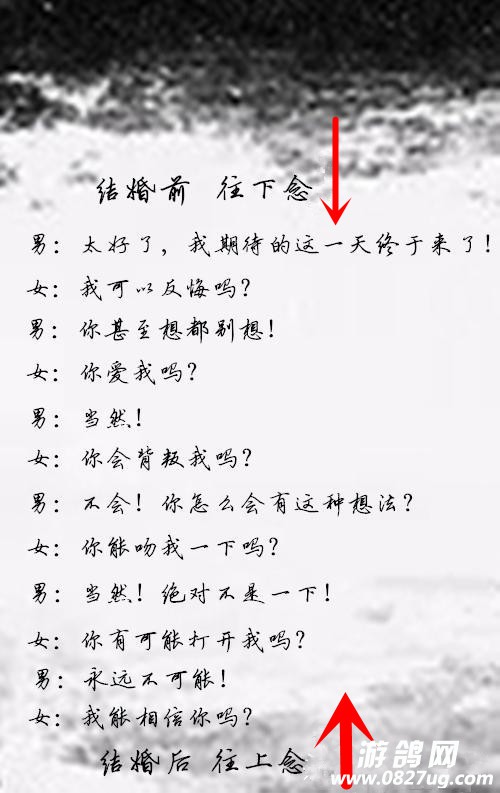 结婚前 往下念
男：太好了，我期待的这一天终于来了！
女：我可以反悔吗？
男：你甚至想都别想！
女：你爱我吗？
男：当然！
女：你会背叛我吗？
男：不会！你怎么会有这种想法？
女：你能吻我一下吗？
男：当然！绝对不是一下！
女：你有可能打开我吗？
男：永远不可能！
女：我能相信你吗？
结婚后 往上念
游鸽网
www.0827ug.com